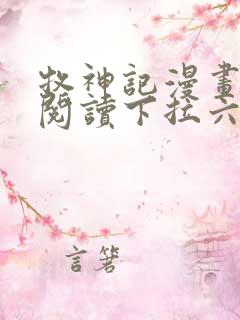 牧神記漫畫
閱讀下拉六
言箬